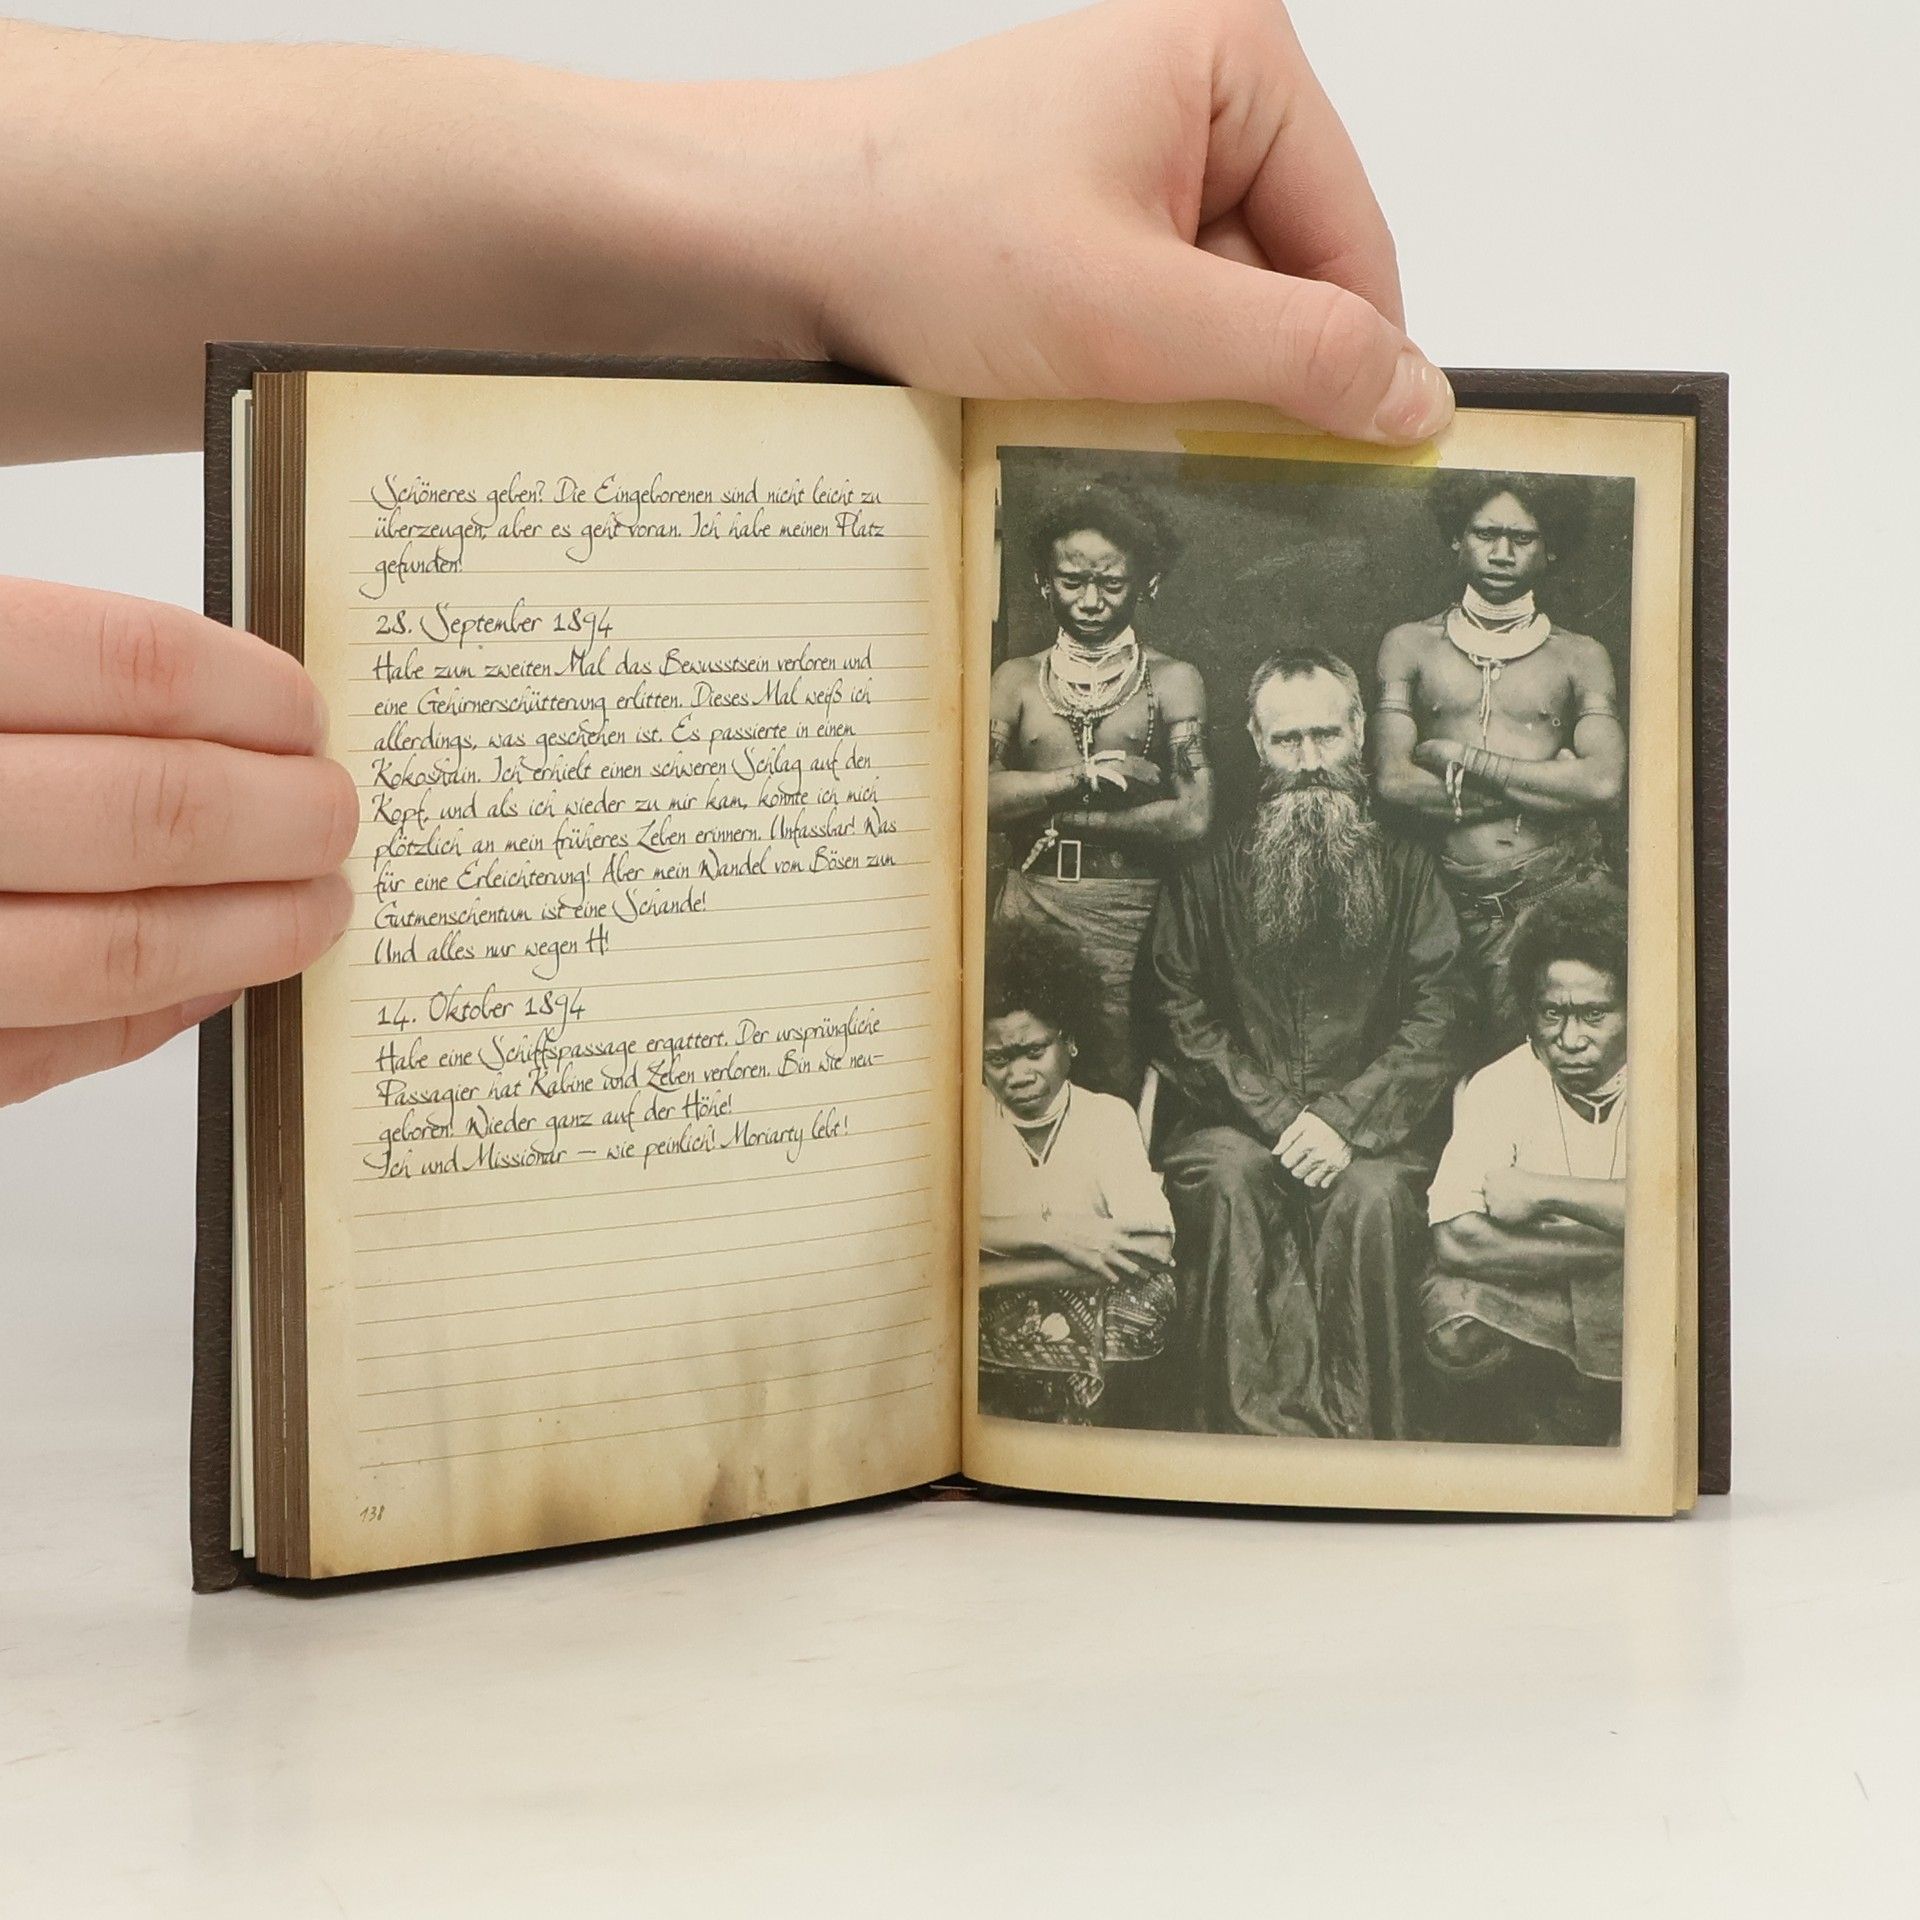 Schöneres geben? Die Eingeborenen sind nicht leicht zu
überzeugen, aber es geht voran. Ich habe meinen Platz
gefunden!
28. September 1894
Habe zum zweiten Mal das Bewusstsein verloren und
eine Gehirnerschütterung erlitten. Dieses Mal weiß ich
allerdings, was geschehen ist. Es passierte in einem
Kokoshain. Ich erhielt einen schweren Schlag auf den
Kopf, und als ich wieder zu mir kam, konnte ich mich
plötzlich an mein früheres Leben erinnern. Unfassbar! Was
für eine Erleichterung! Aber mein Wandel vom Bösen zum
Gutmenschentum ist eine Schande!
Und alles nur wegen H!
14. Oktober 1894
Habe eine Schiffspassage ergattert. Der ursprüngliche
Passagier hat Kabine und Leben verloren. Bin wie neu-
geboren! Wieder ganz auf der Höhe!
Ich und Missionar – wie peinlich! Moriarty lebt!
138